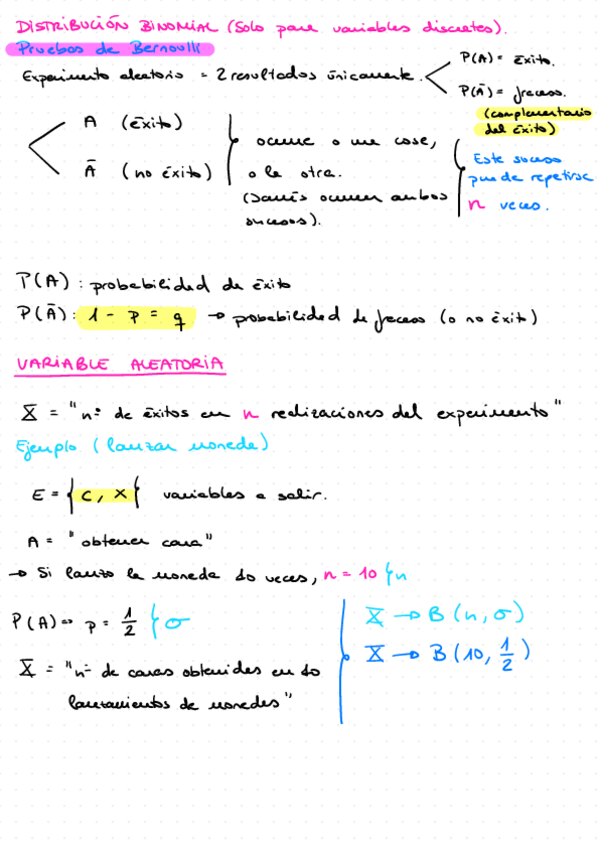 DISTRIBUCIÓN BINOMIAL (Solo para variables discretas).
Pruebas de Bernoulli
Experimento aleatorio = 2 resultados únicamente.
P(A) = éxito.
P(Ā) = fracaso.
(complementario
del éxito)
A (éxito)
Ā (no éxito)
ocurre o una cosa,
o la otra.
(Jamás ocurren ambos
sucesos).
Este suceso
puede repetirse
n veces.
P(A): probabilidad de éxito
P(Ā): 1 - p = q → probabilidad de fracaso (o no éxito)
VARIABLE ALEATORIA
X = "nº de éxitos en n realizaciones del experimento"
Ejemplo (lanzar moneda)
E = { C, X } variables a salir.
A = "obtener cara"
→ Si lanzo la moneda 10 veces, n = 10 } n
P(A) ⇒ p = 1/2 } σ
X = "nº de caras obtenidas en 10
lanzamientos de monedas"
X → B (n, σ)
X → B (10, 1/2)